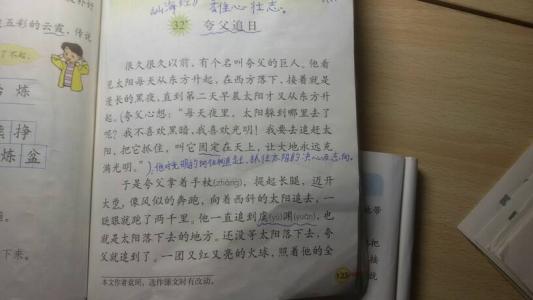 山海经》 雄心壮志。
32 夸父追日
很久很久以前，有个名叫夸父的巨人。他看
见太阳每天从东方升起，在西方落下，接着就是
漫长的黑夜，直到第二天早晨太阳才又从东方升
起。夸父心想：“每天夜里，太阳躲到哪里去了
呢？我不喜欢黑暗，我喜欢光明！我要去追赶太
阳，把它抓住，叫它固定在天上，让大地永远充
满光明。”
于是夸父拿着手杖(zhàng)，提起长腿，迈开
大步，像风似的奔跑，向着西斜的太阳追去，一
眨眼就跑了两千里。他一直追到虞(yú)渊(yuān)，也
就是太阳落下去的地方。还没等太阳落下去，夸
父就追到了。一团又红又亮的火球，照着他的全
本文作者袁珂，选作课文时有改动。
123
五彩的云霞，传说
了不起。
炼
挣
炼 盆
下来。
地带
把
接
就